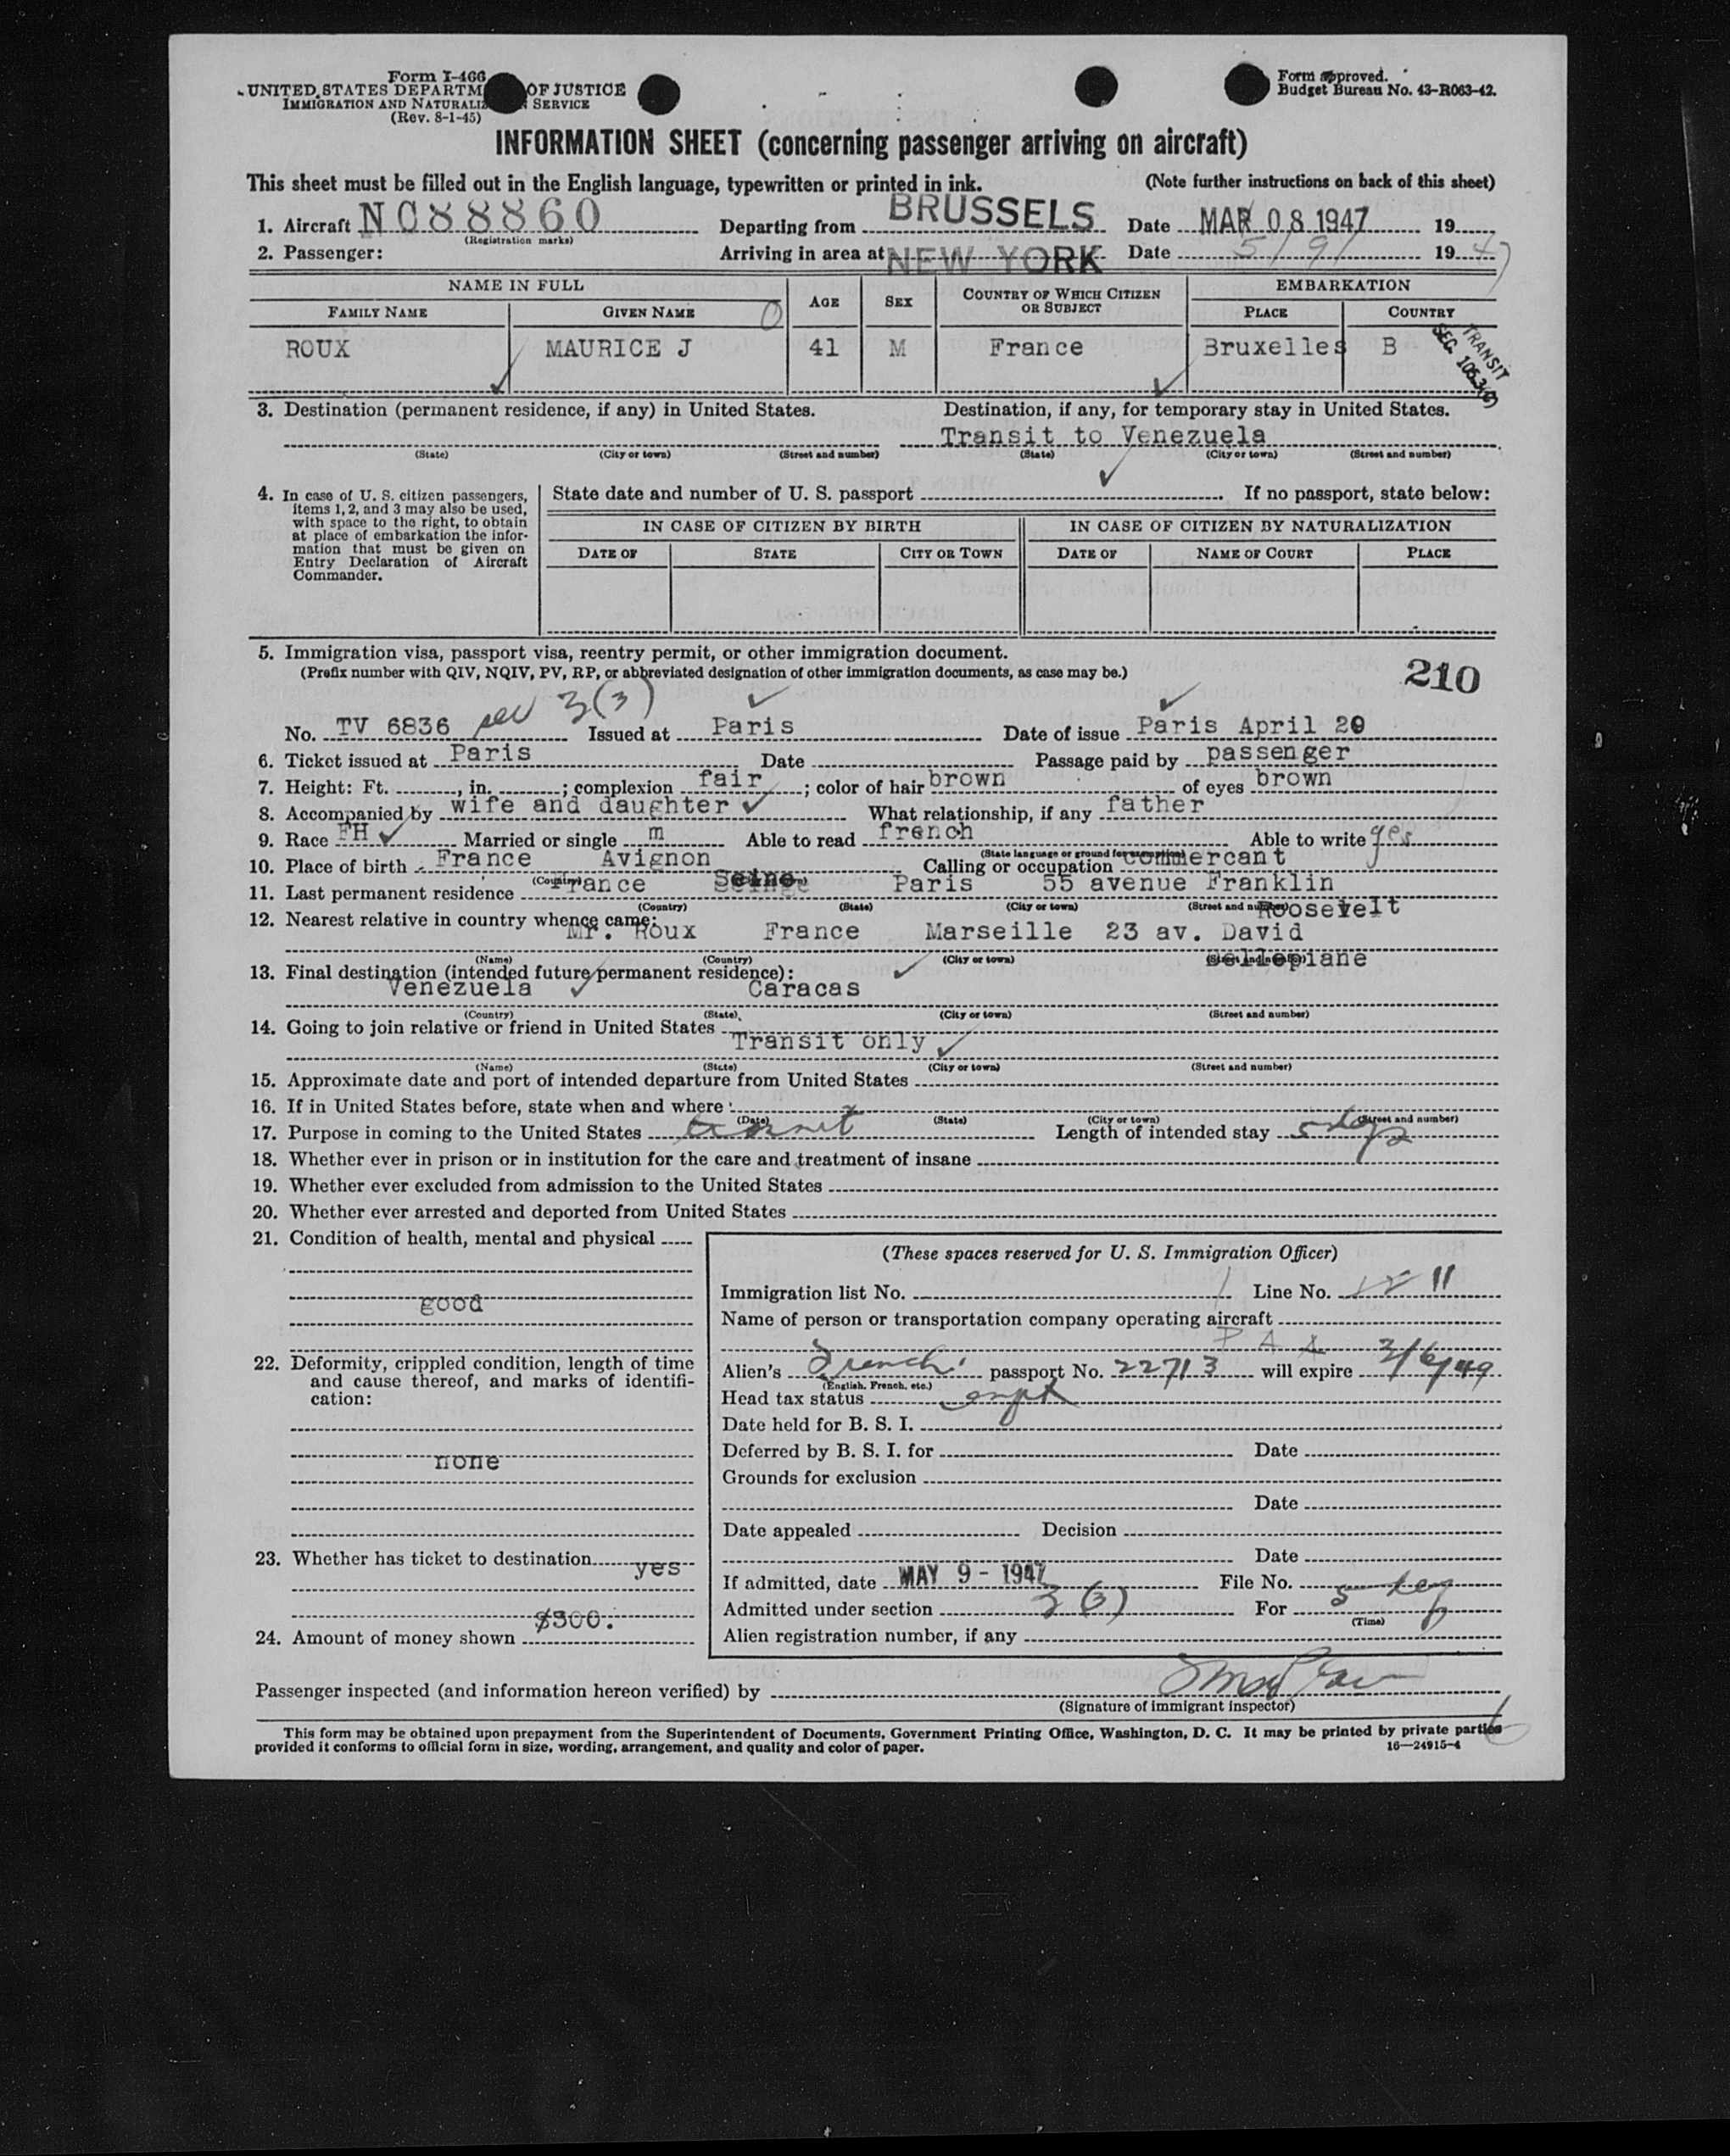 Form I-466
UNITED STATES DEPARTM OF JUSTICE
IMMIGRATION AND NATURALIZ SERVICE
(Rev. 8-1-45)
Form approved.
Budget Bureau No. 43-R063-42.
INFORMATION SHEET (concerning passenger arriving on aircraft)
This sheet must be filled out in the English language, typewritten or printed in ink. (Note further instructions on back of this sheet)
1. Aircraft NC88860 Departing from BRUSSELS Date MAR 08 1947 19
(Registration marks)
2. Passenger: Arriving in area at NEW YORK Date 5/9/ 1947
NAME IN FULL AGE SEX COUNTRY OF WHICH CITIZEN OR SUBJECT EMBARKATION
FAMILY NAME GIVEN NAME PLACE COUNTRY
ROUX MAURICE J 41 M France Bruxelles B
TRANSIT
SEC. 105.3(6)
3. Destination (permanent residence, if any) in United States. Destination, if any, for temporary stay in United States.
Transit to Venezuela
(State) (City or town) (Street and number) (State) (City or town) (Street and number)
4. In case of U. S. citizen passengers, items 1, 2, and 3 may also be used, with space to the right, to obtain at place of embarkation the information that must be given on Entry Declaration of Aircraft Commander.
State date and number of U. S. passport . If no passport, state below:
IN CASE OF CITIZEN BY BIRTH IN CASE OF CITIZEN BY NATURALIZATION
DATE OF STATE CITY OR TOWN DATE OF NAME OF COURT PLACE
5. Immigration visa, passport visa, reentry permit, or other immigration document.
(Prefix number with QIV, NQIV, PV, RP, or abbreviated designation of other immigration documents, as case may be.)
210
No. TV 6836 sec 3(3) Issued at Paris Date of issue Paris April 20
6. Ticket issued at Paris Date Passage paid by passenger
7. Height: Ft. , in. ; complexion fair ; color of hair brown of eyes brown
8. Accompanied by wife and daughter What relationship, if any father
9. Race FH Married or single m Able to read french Able to write yes
(State language or ground for exemption)
10. Place of birth France Avignon Calling or occupation commercant
11. Last permanent residence France Seine Paris 55 avenue Franklin
(Country) (State) (City or town) (Street and number) Roosevelt
12. Nearest relative in country whence came:
Mr. Roux France Marseille 23 av. David
(Name) (Country) (City or town) (Street and number) Bellepiane
13. Final destination (intended future permanent residence):
Venezuela Caracas
(Country) (State) (City or town) (Street and number)
14. Going to join relative or friend in United States
Transit only
(Name) (State) (City or town) (Street and number)
15. Approximate date and port of intended departure from United States
16. If in United States before, state when and where
(Date) (State) (City or town) (Street and number)
17. Purpose in coming to the United States transit Length of intended stay 5 days
18. Whether ever in prison or in institution for the care and treatment of insane
19. Whether ever excluded from admission to the United States
20. Whether ever arrested and deported from United States
21. Condition of health, mental and physical
good
22. Deformity, crippled condition, length of time and cause thereof, and marks of identification:
none
23. Whether has ticket to destination yes
$300.
24. Amount of money shown
(These spaces reserved for U. S. Immigration Officer)
Immigration list No. 1 Line No. 11
Name of person or transportation company operating aircraft
P A A
Alien's French passport No. 22713 will expire 3/6/49
(English, French, etc.)
Head tax status
Date held for B. S. I.
Deferred by B. S. I. for Date
Grounds for exclusion
Date
Date appealed Decision
Date
If admitted, date MAY 9 - 1947 File No.
Admitted under section 3(3) For 5 days
(Time)
Alien registration number, if any
Passenger inspected (and information hereon verified) by
(Signature of immigrant inspector)
This form may be obtained upon prepayment from the Superintendent of Documents, Government Printing Office, Washington, D. C. It may be printed by private parties
provided it conforms to official form in size, wording, arrangement, and quality and color of paper. 16—24915-4